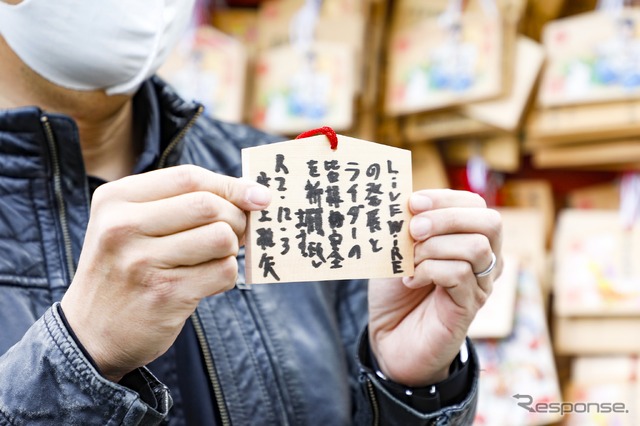 LiVEWiRE
の発展と
ライダーの
皆様の安全
を祈願致し
ます
R2.12.3
水上雅矢
Response.